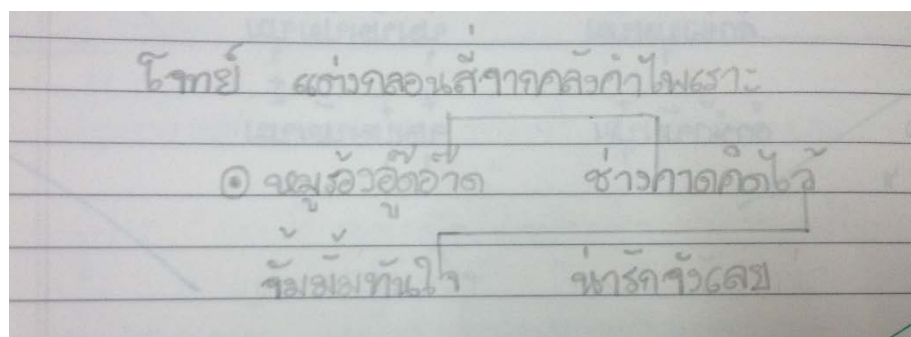 โจทย์ แต่งกลอนสี่จากคลังคำไพเราะ
๏ หมูร้องอู๊ดอ๊าด ช่างคาดคิดไว้
จ้ำม่ำทันใจ น่ารักจังเลย